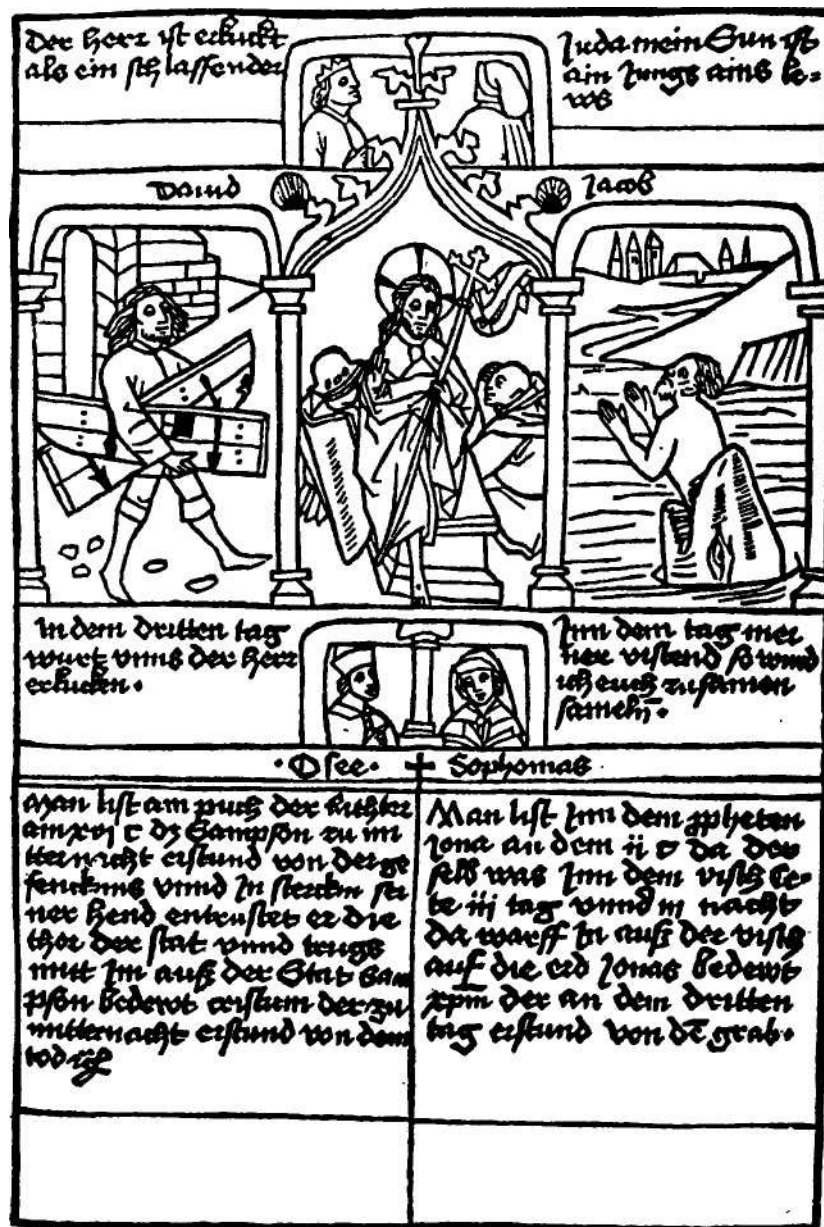 Der herr ist erkuckt
als ein schlaffender
Juda mein Sun ist
ain Jungs ains le-
ws
Dauid
Jacob
In dem dritten tag
wurt vnns der herr
erkucken.
Inn dem tag mei
ner vrstend so wird
ich euch zusamen
samelñ.
Osee.
Sophomas
Man list am puch der richter
am xvi c dz Sampson zu mi
tternacht erstund von der ge
fencknus vnnd In sterckin sei
ner hend entrustet er die
thor der stat vnnd trugs
mitt Im auß der Stat Sam
pson bedewt cristum der zu
mitternacht erstund von dem
tod
Man list Inn dem ppheten
Jona an dem ii c da der
selb was Inn dem visch Ce-
te iii tag vnnd iii nacht
da warff In auß der visch
auf die erd Jonas bedewt
xpm̄ der an dem dritten
tag erstund von dē grab.